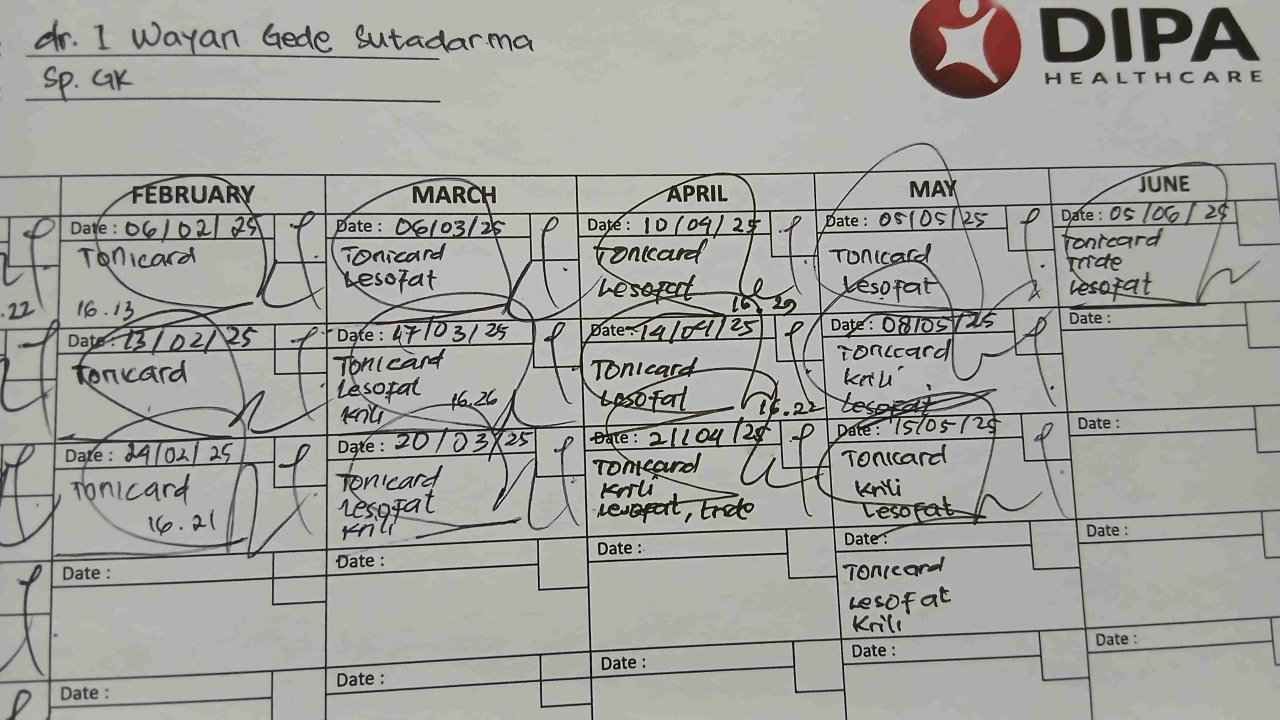 dr. I Wayan Gede Sutadarma
Sp. GK
DIPA
HEALTHCARE
FEBRUARY
MARCH
APRIL
MAY
JUNE
Date : 06/02/25
Tonicard
16.13
Date : 06/03/25
Tonicard
Lesofat
Date : 10/04/25
Tonicard
Lesofat
16.29
Date : 05/05/25
Tonicard
Lesofat
Date : 05/06/25
Tonicard
Tride
Lesofat
.22
Date : 13/02/25
Tonicard
Date : 17/03/25
Tonicard
Lesofat
Krili
16.26
Date : 14/04/25
Tonicard
Lesofat
16.22
Date : 08/05/25
Tonicard
Krili
Lesofat
Date :
Date : 24/02/25
Tonicard
16.21
Date : 20/03/25
Tonicard
Lesofat
Krili
Date : 21/04/25
Tonicard
Krili
Lesofat, trede
Date : 15/05/25
Tonicard
Krili
Lesofat
Date :
Date :
Date :
Date :
Date :
Tonicard
Lesofat
Krili
Date :
Date :
Date :
Date :
Date :
Date :